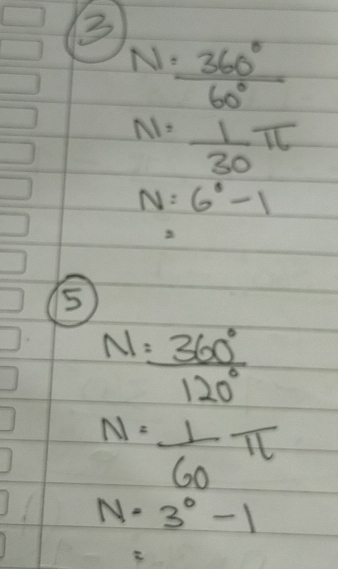 3
N = 360°
60°
N = 1 π
30
N = 6° - 1
=
5
N = 360°
120°
N = 1 π
60
N = 3° - 1
=